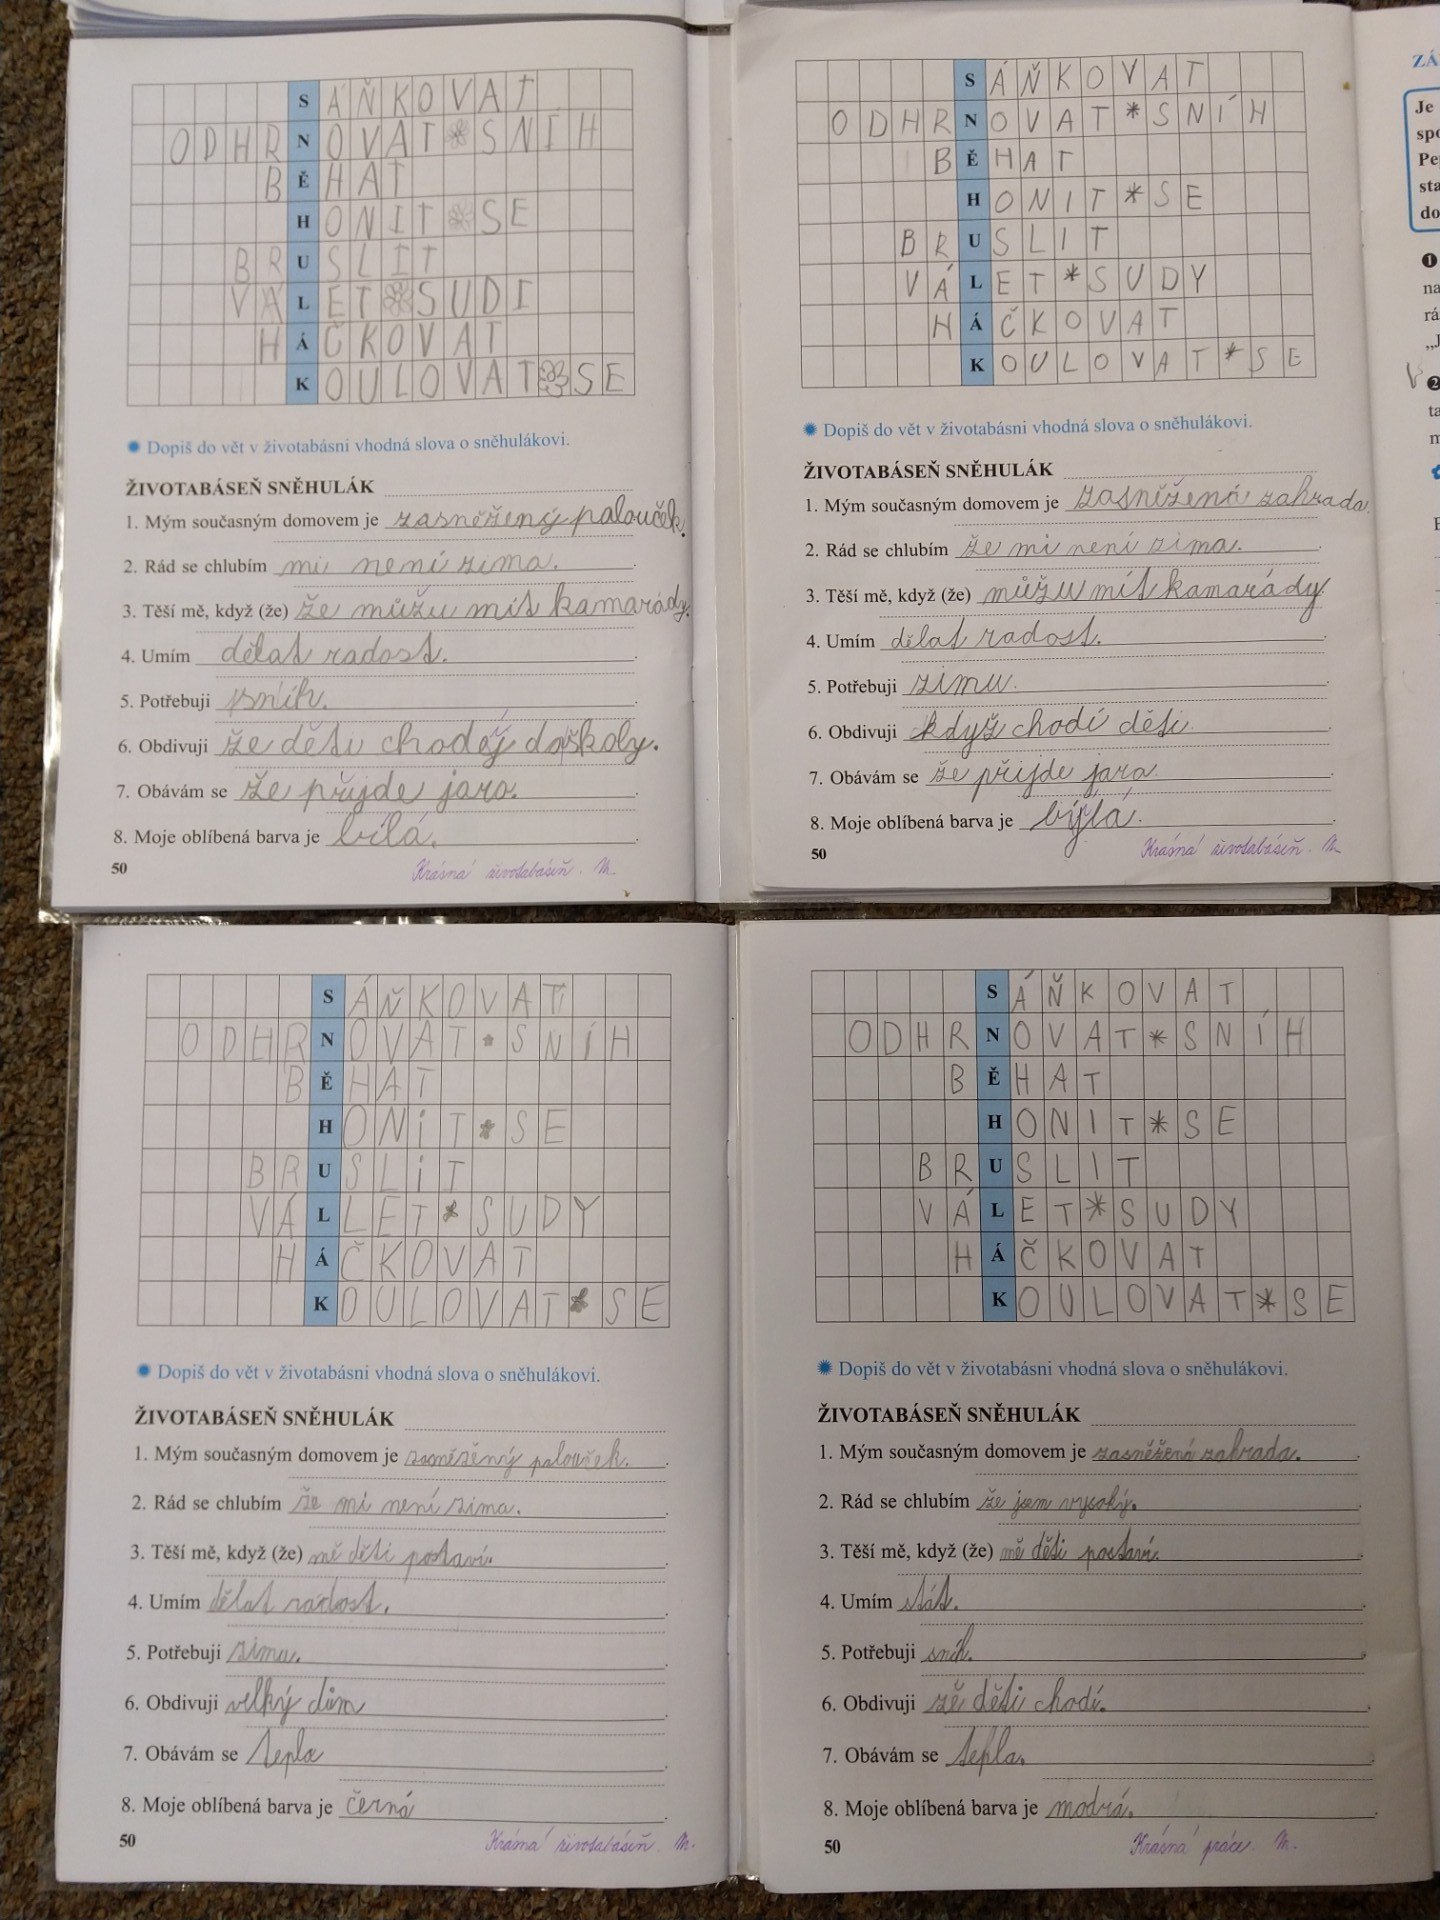 SÁŇKOVAT
ODHRNOVAT SNÍH
BĚHAT
HONIT SE
BRUSLIT
VÁLET SUDI
HÁČKOVAT
KOULOVAT SE
Dopiš do vět v životabásni vhodná slova o sněhulákovi.
ŽIVOTABÁSEŇ SNĚHULÁK
1. Mým současným domovem je zasněžený palouček.
2. Rád se chlubím mi není zima.
3. Těší mě, když (že) že můžu mít kamarády.
4. Umím dělat radost.
5. Potřebuji sníh.
6. Obdivuji že děti choděj do školy.
7. Obávám se že přijde jaro.
8. Moje oblíbená barva je bílá.
50 Krásná životabáseň. M.
SÁŇKOVAT
ODHRNOVAT*SNÍH
BĚHAT
HONIT*SE
BRUSLIT
VÁLET*SUDY
HÁČKOVAT
KOULOVAT*SE
Dopiš do vět v životabásni vhodná slova o sněhulákovi.
ŽIVOTABÁSEŇ SNĚHULÁK
1. Mým současným domovem je zasněžená zahrada.
2. Rád se chlubím že mi není zima.
3. Těší mě, když (že) můžu mít kamarády.
4. Umím dělat radost.
5. Potřebuji zimu.
6. Obdivuji když chodí děti.
7. Obávám se že přijde jaro.
8. Moje oblíbená barva je býlá.
50 Krásná životabáseň. M.
ZÁ
Je
spo
Pe
sta
do
1
na
rá
„J
2
ta
m
SÁŇKOVAT
ODHRNOVAT SNÍH
BĚHAT
HONIT SE
BRUSLIT
VÁLLET SUDY
HÁČKOVAT
KOULOVAT SE
Dopiš do vět v životabásni vhodná slova o sněhulákovi.
ŽIVOTABÁSEŇ SNĚHULÁK
1. Mým současným domovem je zasněžěný palouček.
2. Rád se chlubím že mi není zima.
3. Těší mě, když (že) mě děti postaví.
4. Umím dělat radost.
5. Potřebuji zimu.
6. Obdivuji velký dům
7. Obávám se tepla
8. Moje oblíbená barva je černá
50 Krásná životabáseň. M.
SÁŇKOVAT
ODHRNOVAT*SNÍH
BĚHAT
HONIT*SE
BRUSLIT
VÁLET*SUDY
HÁČKOVAT
KOULOVAT*SE
Dopiš do vět v životabásni vhodná slova o sněhulákovi.
ŽIVOTABÁSEŇ SNĚHULÁK
1. Mým současným domovem je zasněžená zahrada.
2. Rád se chlubím že jsem vysoký.
3. Těší mě, když (že) mě děti postaví.
4. Umím stát.
5. Potřebuji sníh.
6. Obdivuji zě děti chodí.
7. Obávám se tepla.
8. Moje oblíbená barva je modrá.
50 Krásná práce. M.